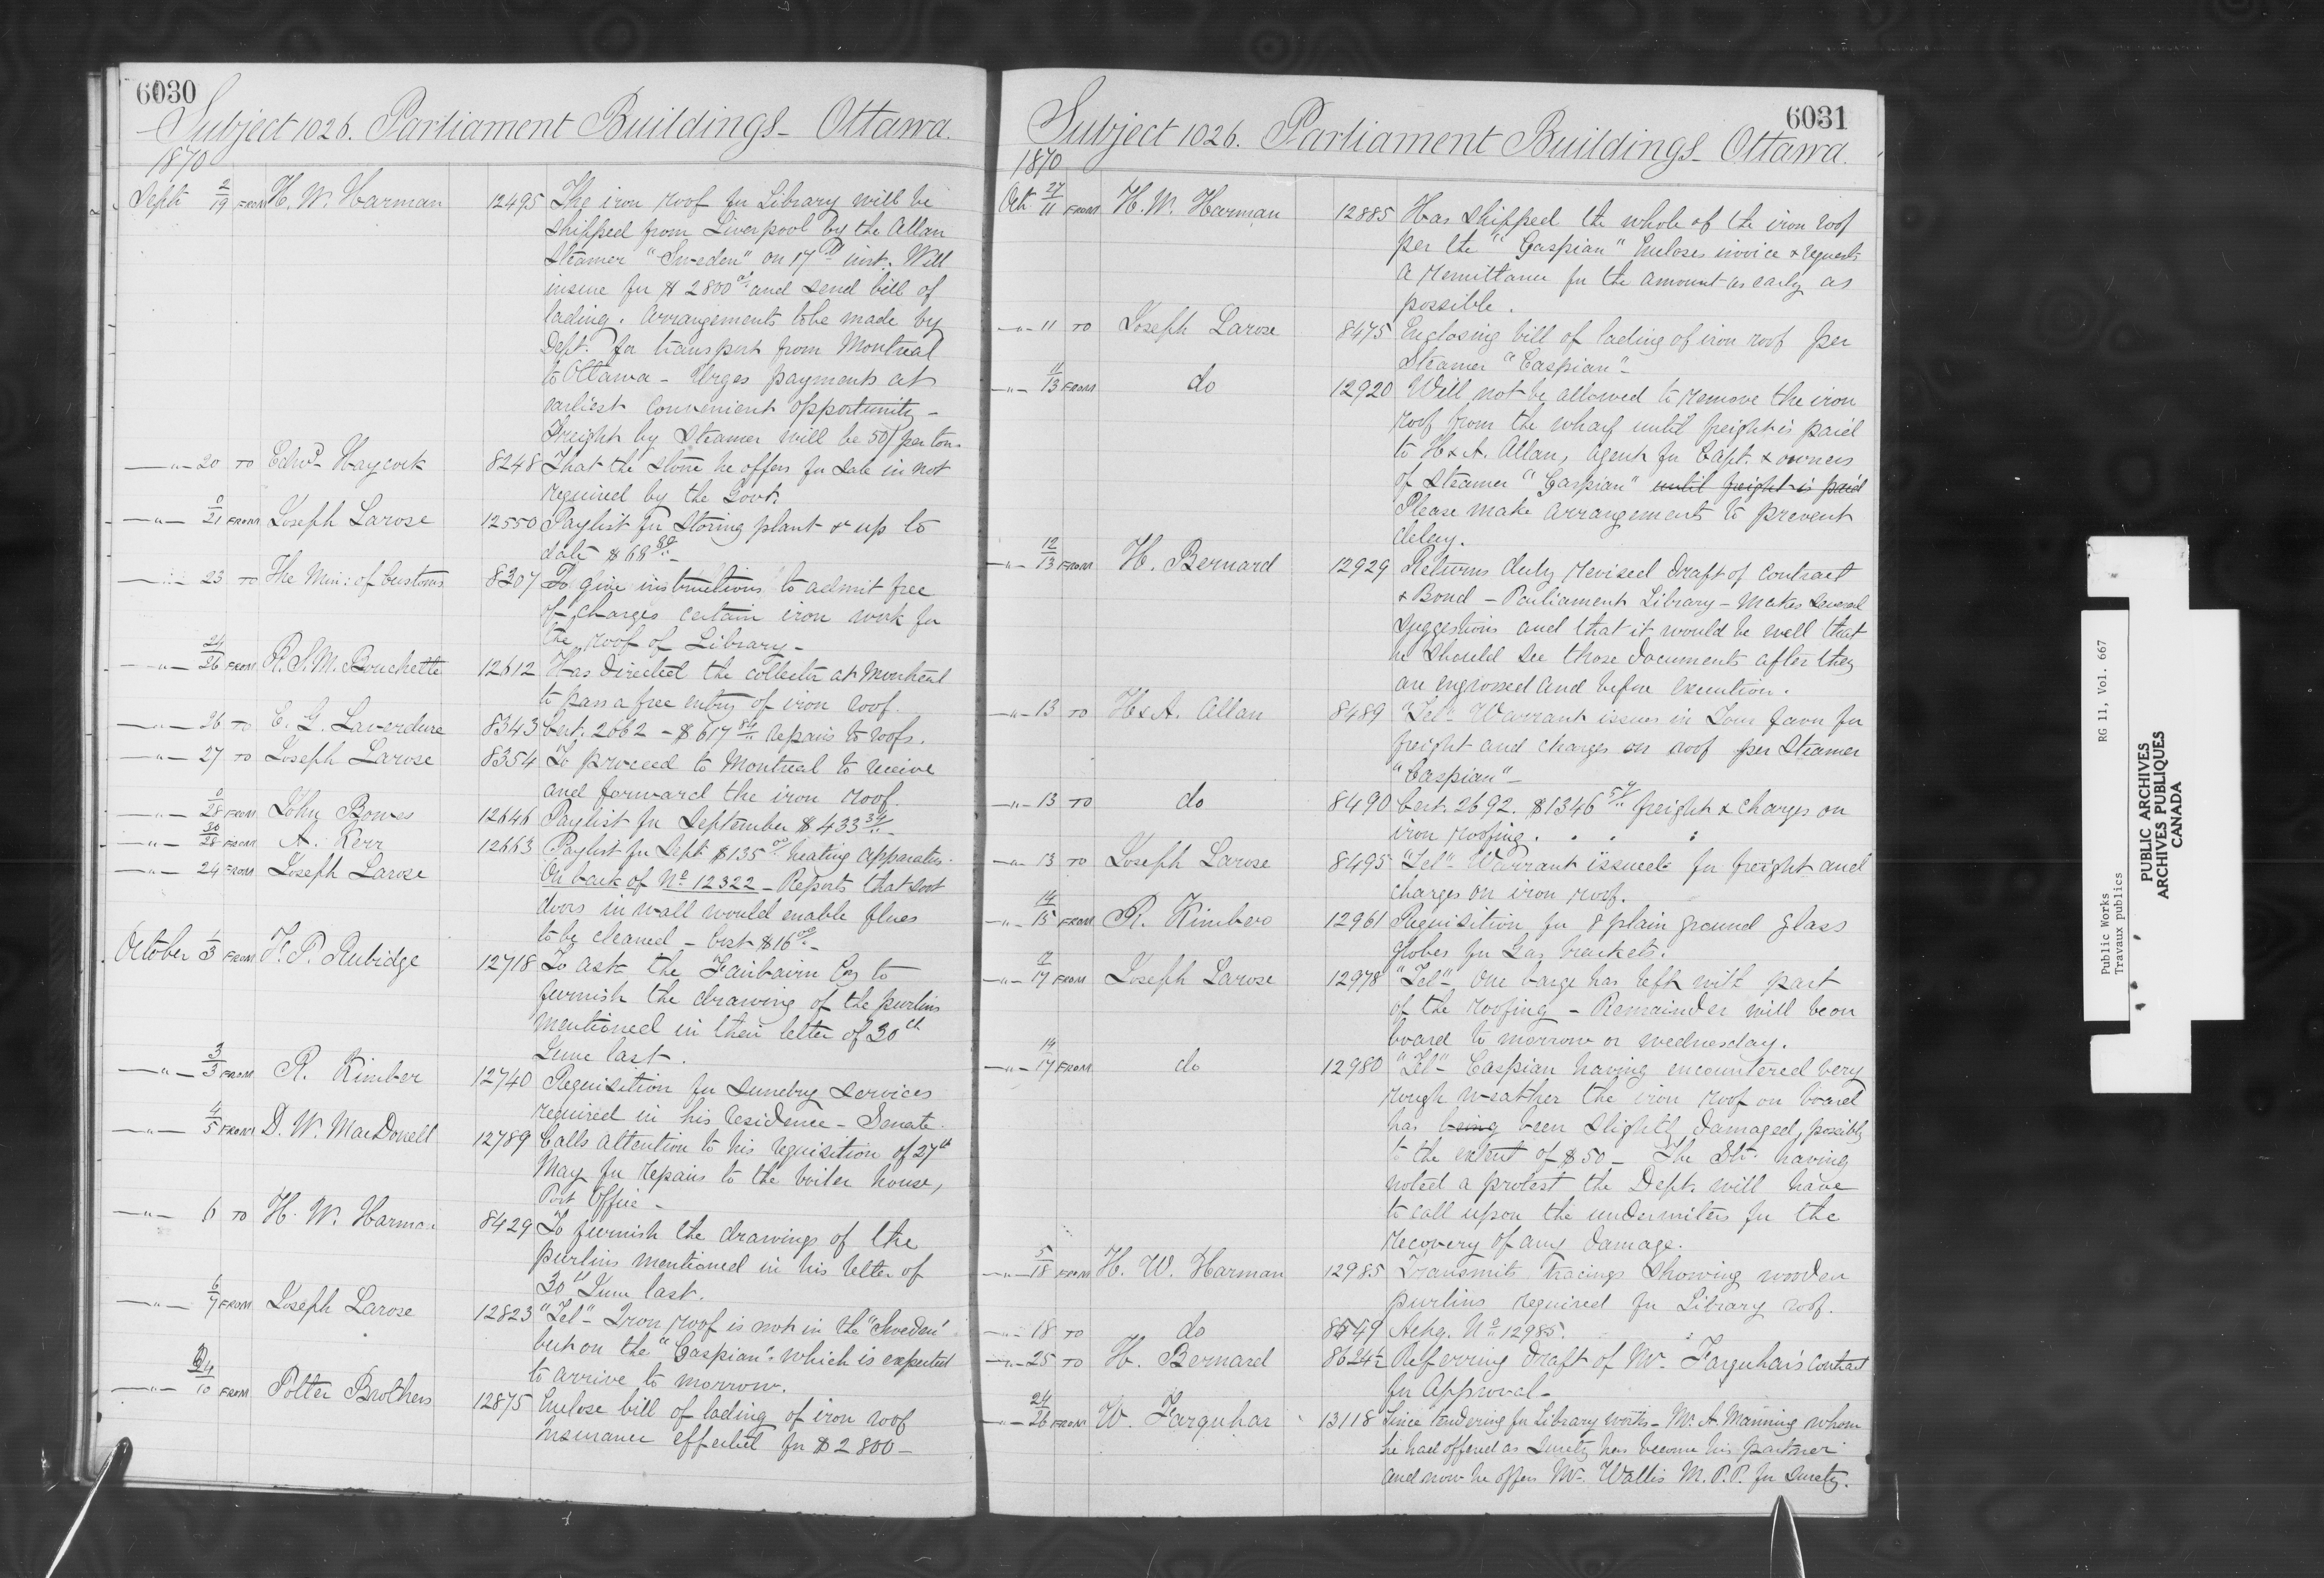 6030
Subject 1026. Parliament Buildings - Ottawa.
1870
Sept 2/19 FROM H. W. Harman 12495 The iron roof for Library will be
shipped from Liverpool by the Allan
Steamer "Sweden" on 17th inst. Will
insure for $2800 and send bill of
lading. Arrangements to be made by
Dept. for transport from Montreal
to Ottawa - Urges payments at
earliest convenient opportunity -
Freight by Steamer will be 50/ per ton.
—"— 20 TO Edwd. Haycock 8248 That the stone he offers for sale is not
required by the Govt.
—"— 0/21 FROM Joseph Larose 12550 Paylist for storing plant & up to
date $68
—"— 23 TO The Min: of Customs 8307 To give instructions to admit free
of charges certain iron work for
the roof of Library -
—"— 24/26 FROM R. S. M. Bouchette 12612 Has directed the collector at Montreal
to pass a free entry of iron roof.
—"— 26 TO E. G. Laverdure 8343 Cert. 2062 - $617 84 repairs to roofs.
—"— 27 TO Joseph Larose 8354 To proceed to Montreal to receive
and forward the iron roof.
—"— 0/28 FROM John Bowes 12646 Paylist for September $433
—"— 30/28 FROM A. Kerr 12663 Paylist for Sept $135 00 heating apparatus.
—"— 24 FROM Joseph Larose On back of No. 12322 - Reports that soot
doors in wall would enable flues
to be cleaned - Cost $16 00 -
October 1/3 FROM F. P. Rubidge 12718 To ask the Fairbairn Eng to
furnish the drawing of the purlins
mentioned in their letter of 30th
June last.
—"— 3/3 FROM R. Kimber 12740 Requisition for sundry services
required in his residence - Senate.
—"— 4/5 FROM D. W. MacDonell 12789 Calls attention to his requisition of 27th
May for repairs to the boiler house,
Post Office -
—"— 6 TO H. W. Harman 8429 To furnish the drawings of the
purlins mentioned in his letter of
30th June last.
—"— 6/7 FROM Joseph Larose 12823 "Tel" - Iron roof is not in the "Sweden"
but on the "Caspian" which is expected
to arrive to morrow.
—"— /10 FROM Potter Brothers 12875 Enclose bill of lading of iron roof
Insurance effected for $2800 -
6031
Subject 1026. Parliament Buildings - Ottawa.
1870
Oct. 27/11 FROM H. W. Harman 12885 Has shipped the whole of the iron roof
per the "Caspian" Encloses invoice & requests
a remittance for the amount as early as
possible.
—"— 11 TO Joseph Larose 8475 Enclosing bill of lading of iron roof per
Steamer "Caspian" -
—"— 11/13 FROM do 12920 Will not be allowed to remove the iron
roof from the wharf until freight is paid
to H & A. Allan, Agents for Capt. & owners
of Steamer "Caspian" until freight is paid
Please make arrangements to prevent
delay.
—"— 12/13 FROM H. Bernard 12929 Returns duly revised draft of contract
& Bond - Parliament Library - Makes several
suggestions and that it would be well that
he should see those documents after they
are engrossed and before execution.
—"— 13 TO H & A. Allan 8489 "Tel" Warrant issues in your favor for
freight and charges on roof per Steamer
"Caspian" -
—"— 13 TO do 8490 Cert. 2692. $1346 freight & charges on
iron roofing.
—"— 13 TO Joseph Larose 8495 "Tel" Warrant issued for freight and
charges on iron roof.
—"— 14/15 FROM R. Kimber 12961 Requisition for 8 plain ground glass
globes for Gas brackets.
—"— /17 FROM Joseph Larose 12978 "Tel" - One barge has left with part
of the roofing - Remainder will be on
board to morrow or wednesday.
—"— 14/17 FROM do 12980 "Tel" - Caspian having encountered very
rough weather the iron roof on board
has being been slightly damaged, possibly
to the extent of $50 - The Str. having
noted a protest the Dept. will have
to call upon the underwriters for the
recovery of any damage.
—"— 5/18 FROM H. W. Harman 12985 Transmits tracings showing wooden
purlins required for Library roof.
—"— 18 TO do 8549 Ackg. No. 12985.
—"— 25 TO H. Bernard 8624½ Referring draft of Mr. Farquhar's contract
for Approval -
—"— 24/26 FROM W. Farquhar 13118 Since tendering for Library works - Mr. A. Manning whom
he had offered as surety has become his partner
and now he offers Mr. Wallis M.P.P. for surety.
Public Works RG 11, Vol. 667
Travaux publics
PUBLIC ARCHIVES
ARCHIVES PUBLIQUES
CANADA